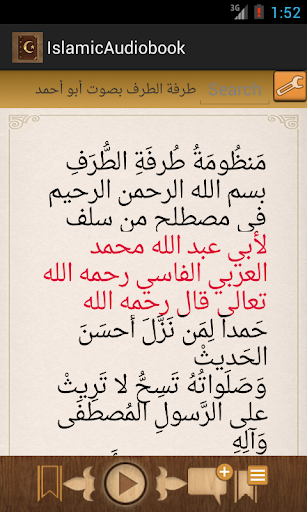 3G 1:52
IslamicAudiobook
طرفة الطرف بصوت أبو أحمد Search
مَنظُومَةُ طُرفَةِ الطُّرَفِ
بسم الله الرحمن الرحيم
في مصطلح من سلف
لأبي عبد الله محمد
العربي الفاسي رحمه الله
تعالى قال رحمه الله
حَمداً لِمَن نَزَّلَ أَحسَنَ
الحَديثْ
وَصَلَواتُهُ تَسِحُّ لا تَرِيثْ
على الرَّسولِ المُصطَفَى
وَآلِهِ